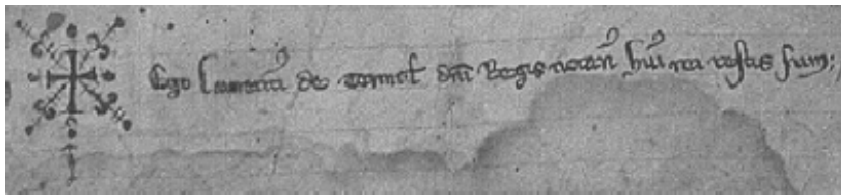 Ego laurenti⁹ de dn̄i Regis notari⁹ hui⁹ rei testis sum: